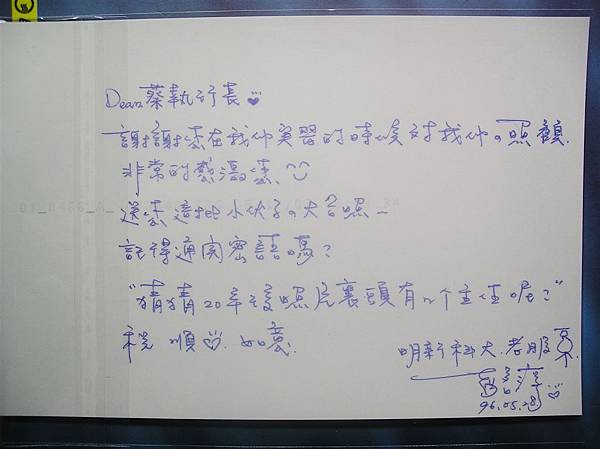 Dear 蔡執行長♡
謝謝您在我們實習的時候對我們の照顧.
非常的感激您.
送您這批小伙子の大合照~
記得通關密語嗎?
"猜猜20年後照片裏頭有几个主任呢?"
祝 順♡. 如意.
明新科大.老服系.
96.05.28